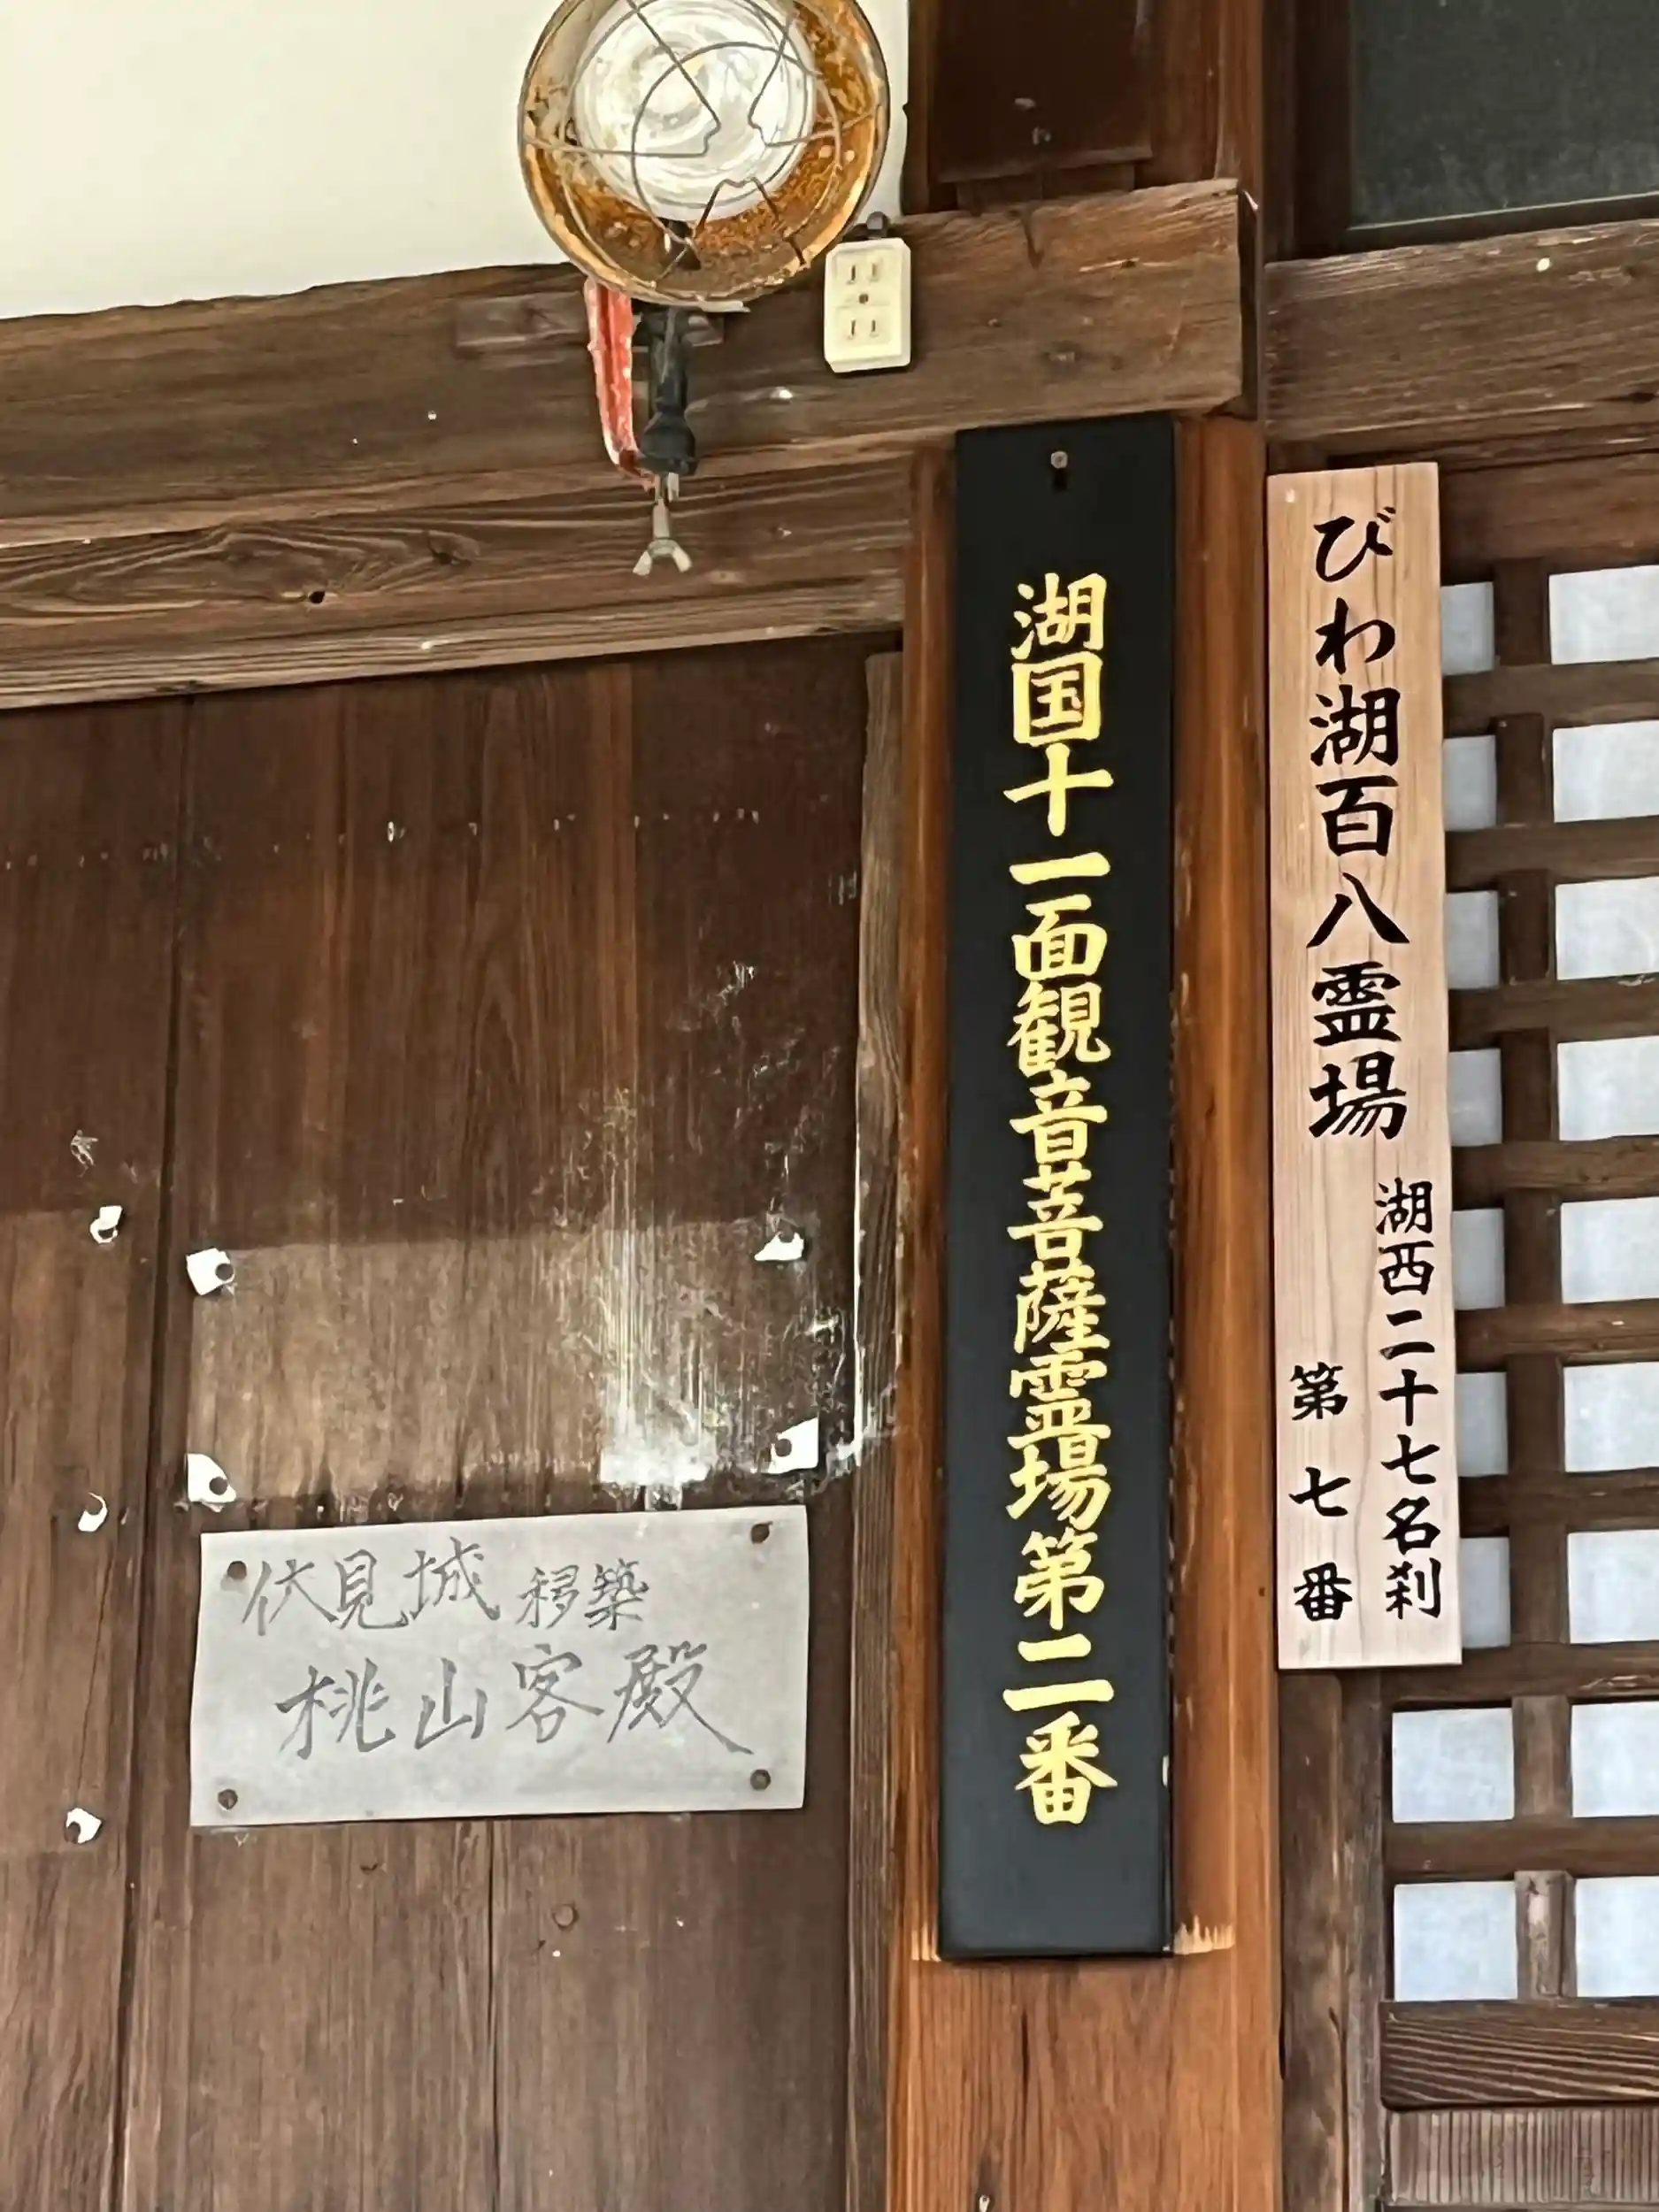 びわ湖百八霊場
湖西二十七名刹
第七番
湖国十一面観音菩薩霊場第二番
伏見城移築
桃山客殿